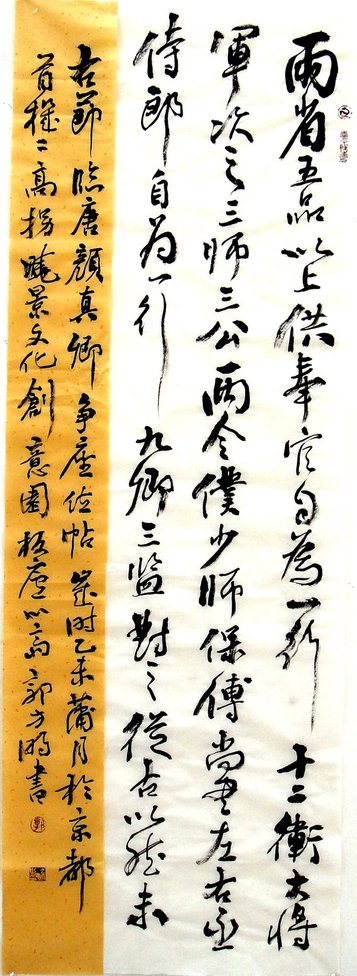 兩省五品以上供奉官自為一行 十二衛大將
軍次之三師三公兩令僕少師保傅尚書左右丞
侍郎自为一行 九卿三监對之從古以然未
右節臨唐顏真卿争座位帖 歲时乙未蒲月於京都
高拐 景文化創意園 郭方 書